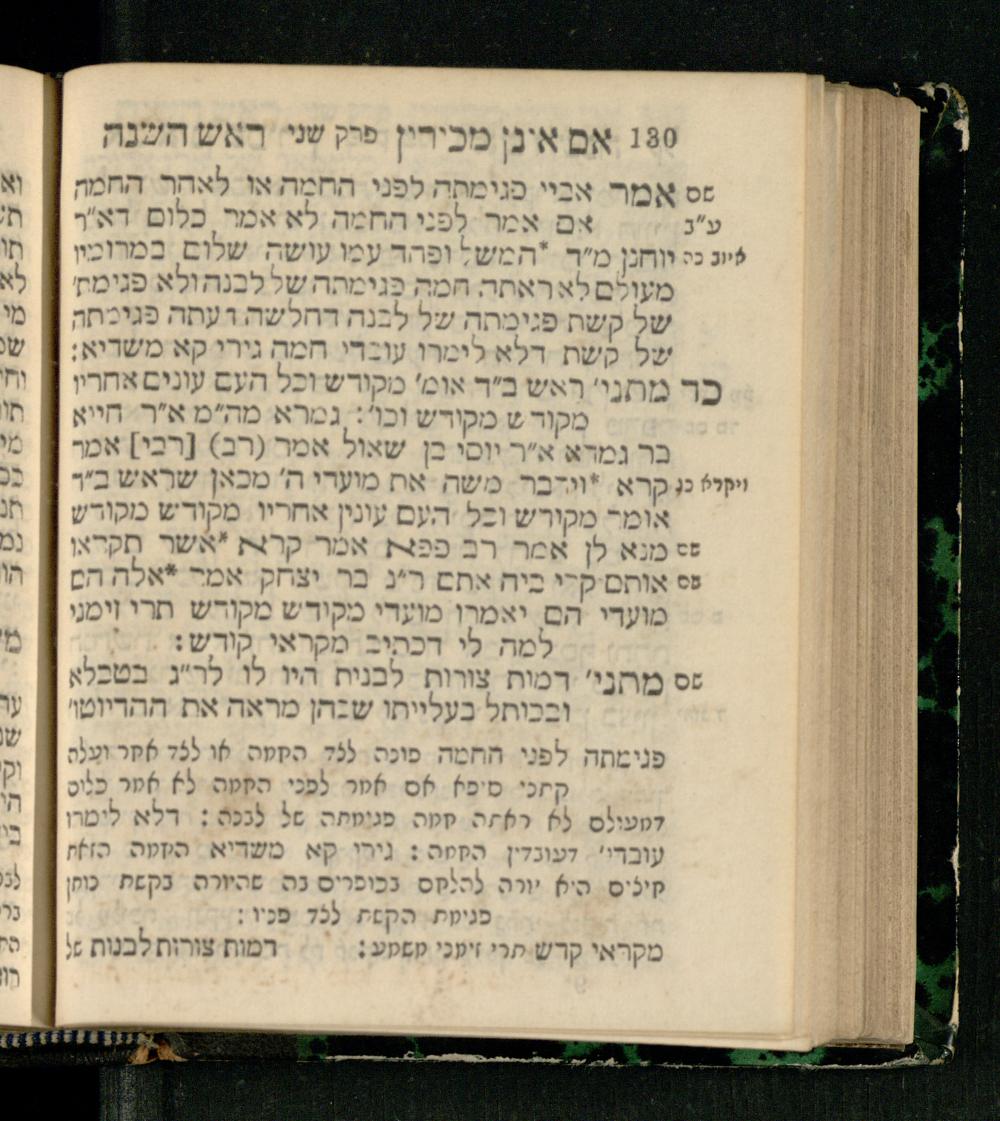 130 אם אינן מכירין פרק שני ראש השנה
שם אמר אביי פגימתה לפני החמה או לאחר החמה
ע״ב אם אמר לפני החמה לא אמר כלום דא״ר
איוב כה יוחנן מ״ד *המשל ופחד עמו עושה שלום במרומיו
מעולם לא ראתה חמה פגימתה של לבנה ולא פגימת׳
של קשת פגימתה של לבנה דחלשה דעתה פגימתה
של קשת דלא לימרו עובדי חמה גירי קא משדיא:
כד מתני׳ ראש ב״ד אומ׳ מקודש וכל העם עונים אחריו
מקודש מקודש וכו׳: גמרא מה״מ א״ר חייא
בר גמדא א״ר יוסי בן שאול אמר (רב) [רבי] אמר
ויקרא כג קרא *וידבר משה את מועדי ה׳ מכאן שראש ב״ד
אומר מקודש וכל העם עונין אחריו מקודש מקודש
שם מנא לן אמר רב פפא אמר קרא *אשר תקראו
שם אותם קרי ביה אתם ר״נ בר יצחק אמר *אלה הם
מועדי הם יאמרו מועדי מקודש מקודש תרי זימני
למה לי דכתיב מקראי קודש:
שם מתני׳ דמות צורות לבנית היו לו לר״ג בטבלא
ובכותל בעלייתו שבהן מראה את ההדיוטו׳
פגימתה לפני החמה פונה לצד החמה או לצד אחר ועלה
קתני סיפא אם אמר לפני החמה לא אמר כלום
דמעולם לא ראתה חמה פגימתה של לבנה: דלא לימרו
עובדי׳ דעובדין החמה: גירי קא משדיא החמה הזאת
חיצים היא יורה להלחם בכופרים בה שהיורה בקשת כותן
פגימת הקשת לצד פניו:
מקראי קדש תרי זימני משמע: דמות צורות לבנות של